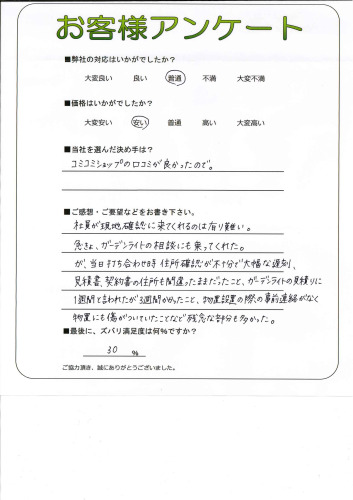 お客様アンケート
■弊社の対応はいかがでしたか？
大変良い 良い 普通 不満 大変不満
■価格はいかがでしたか？
大変安い 安い 普通 高い 大変高い
■当社を選んだ決め手は？
コミコミショップの口コミが良かったので。
■ご感想・ご要望などをお書き下さい。
社員が現地確認に来てくれるのは有り難い。
急きょ、ガーデンライトの相談にも乗ってくれた。
が、当日打ち合わせ時住所確認が不十分で大幅な遅刻、
見積書、契約書の住所も間違ったままだったこと、ガーデンライトの見積りに
1週間と言われたが3週間かかったこと、物置設置の際の事前連絡がなく
物置にも傷がついていたことなど残念な部分も多かった。
■最後に、ズバリ満足度は何％ですか？
30 ％
ご協力頂き、誠にありがとうございました。